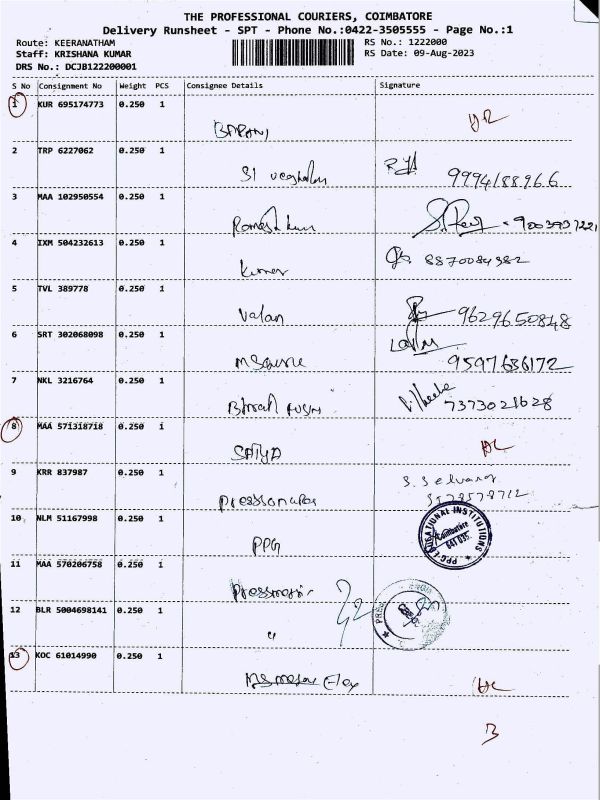 THE PROFESSIONAL COURIERS, COIMBATORE
Delivery Runsheet - SPT - Phone No.:0422-3505555 - Page No.:1
Route: KEERANATHAM RS No.: 1222000
Staff: KRISHANA KUMAR RS Date: 09-Aug-2023
DRS No.: DCJB122200001
S No Consignment No Weight PCS Consignee Details Signature
1 KUR 695174773 0.250 1
2 TRP 6227062 0.250 1
9994188966
3 MAA 102950554 0.250 1
4 IXM 504232613 0.250 1
Kumar 8870084382
5 TVL 389778 0.250 1
Valan 9629650848
6 SRT 302068098 0.250 1
9597636172
7 NKL 3216764 0.250 1
7373021628
8 MAA 571318718 0.250 1
SATYA
9 KRR 837987 0.250 1
S. Selvaraj
10 NLM 51167998 0.250 1
PPG
PPG EDUCATIONAL INSTITUTIONS
Coimbatore
641 035
11 MAA 570206758 0.250 1
12 BLR 5004698141 0.250 1
"
13 KOC 61014990 0.250 1